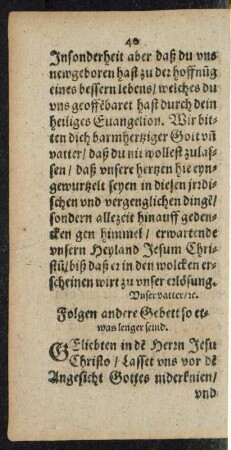 40
Insonderheit aber daß du vns
newgeboren hast zu der hoffnūg
eines bessern lebens/ welches du
vns geoffēbaret hast durch dein
heiliges Euangelion. Wir bit-
ten dich barmhertziger Gott vñ
vatter/ daß du nit wollest zulas-
sen/ daß vnsere hertzen hie eyn-
gewurtzelt seyen in diesen jrrdi-
schen vnd vergenglichen dingē/
sondern allezeit hinauff geden-
cken gen himmel/ erwartende
vnsern Heyland Jesum Chri-
stū/ biß daß er in den wolcken er-
scheinen wirt zu vnser erlösung.
Vnser vatter/ ꝛc.
Folgen andere Gebett so et-
was lenger seind.
GEliebten in dē Herrn Jesu
Christo/ Lasset vns vor dē
Angesicht Gottes niderknien/
vnd